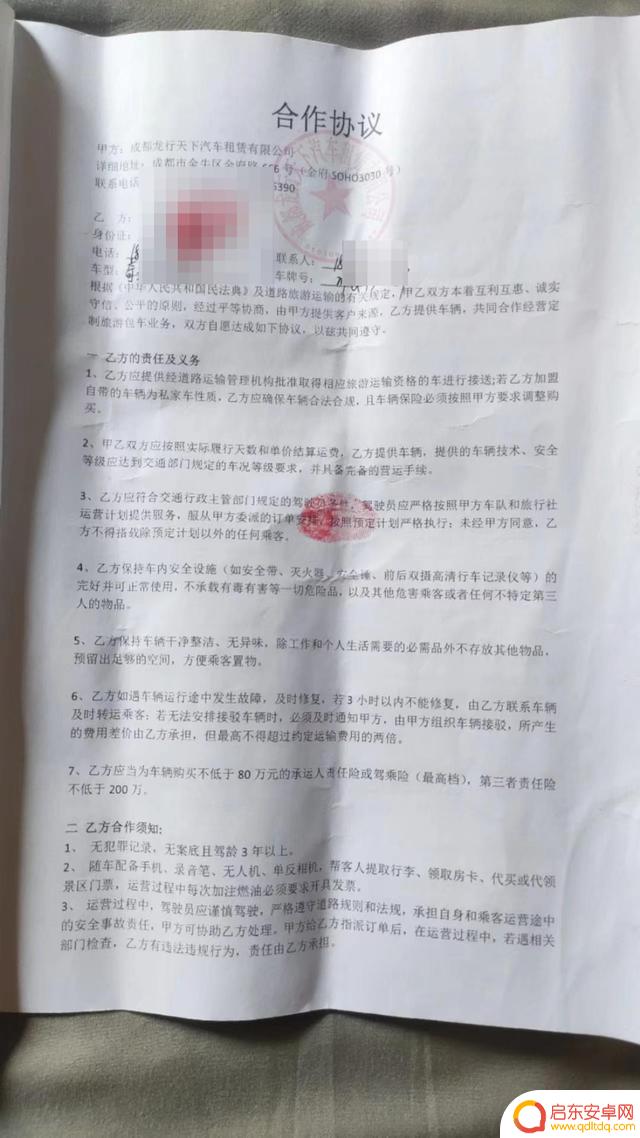 合作协议
甲方：成都龙行天下汽车租赁有限公司
详细地址：成都市金牛区金府路 6号（金府SOHO3030号）
联系电话 6390
乙 方：
身份证：
电话：18 联系人：18
车型： 车牌号：
根据《中华人民共和国民法典》及道路旅游运输的有关规定，甲乙双方本着互利互惠、诚实
守信、公平的原则，经过平等协商，由甲方提供客户来源，乙方提供车辆，共同合作经营定
制旅游包车业务，双方自愿达成如下协议，以兹共同遵守。
一 乙方的责任及义务
1、乙方应提供经道路运输管理机构批准取得相应旅游运输资格的车进行接送;若乙方加盟
自带的车辆为私家车性质，乙方应确保车辆合法合规，且车辆保险必须按照甲方要求调整购
买。
2、甲乙双方应按照实际履行天数和单价结算运费，乙方提供车辆，提供的车辆技术、安全
等级应达到交通部门规定的车况等级要求，并具备完备的营运手续。
3、乙方应符合交通行政主管部门规定的驾驶 驾驶员应严格按照甲方车队和旅行社
运营计划提供服务，服从甲方委派的订单安排，按照预定计划严格执行；未经甲方同意，乙
方不得搭载除预定计划以外的任何乘客。
4、乙方保持车内安全设施（如安全带、灭火器、安全锤、前后双摄高清行车记录仪等）的
完好并可正常使用，不承载有毒有害等一切危险品，以及其他危害乘客或者任何不特定第三
人的物品。
5、乙方保持车辆干净整洁、无异味，除工作和个人生活需要的必需品外不存放其他物品，
预留出足够的空间，方便乘客置物。
6、乙方如遇车辆运行途中发生故障，及时修复，若3小时以内不能修复，由乙方联系车辆
及时转运乘客；若无法安排接驳车辆时，必须及时通知甲方，由甲方组织车辆接驳，所产生
的费用差价由乙方承担，但最高不得超过约定运输费用的两倍。
7、乙方应当为车辆购买不低于80万元的承运人责任险或驾乘险（最高档），第三者责任险
不低于200万。
二 乙方合作须知：
1、 无犯罪记录，无案底且驾龄3年以上。
2、 随车配备手机、录音笔、无人机、单反相机，帮客人提取行李、领取房卡、代买或代领
景区门票，运营过程中每次加注燃油必须要求开具发票。
3、 运营过程中，驾驶员应谨慎驾驶，严格遵守道路规则和法规，承担自身和乘客运营途中
的安全事故责任，甲方可协助乙方处理。甲方给乙方指派订单后，在运营过程中，若遇相关
部门检查，乙方有违法违规行为，责任由乙方承担。
启东安卓网
www.qdltdq.com